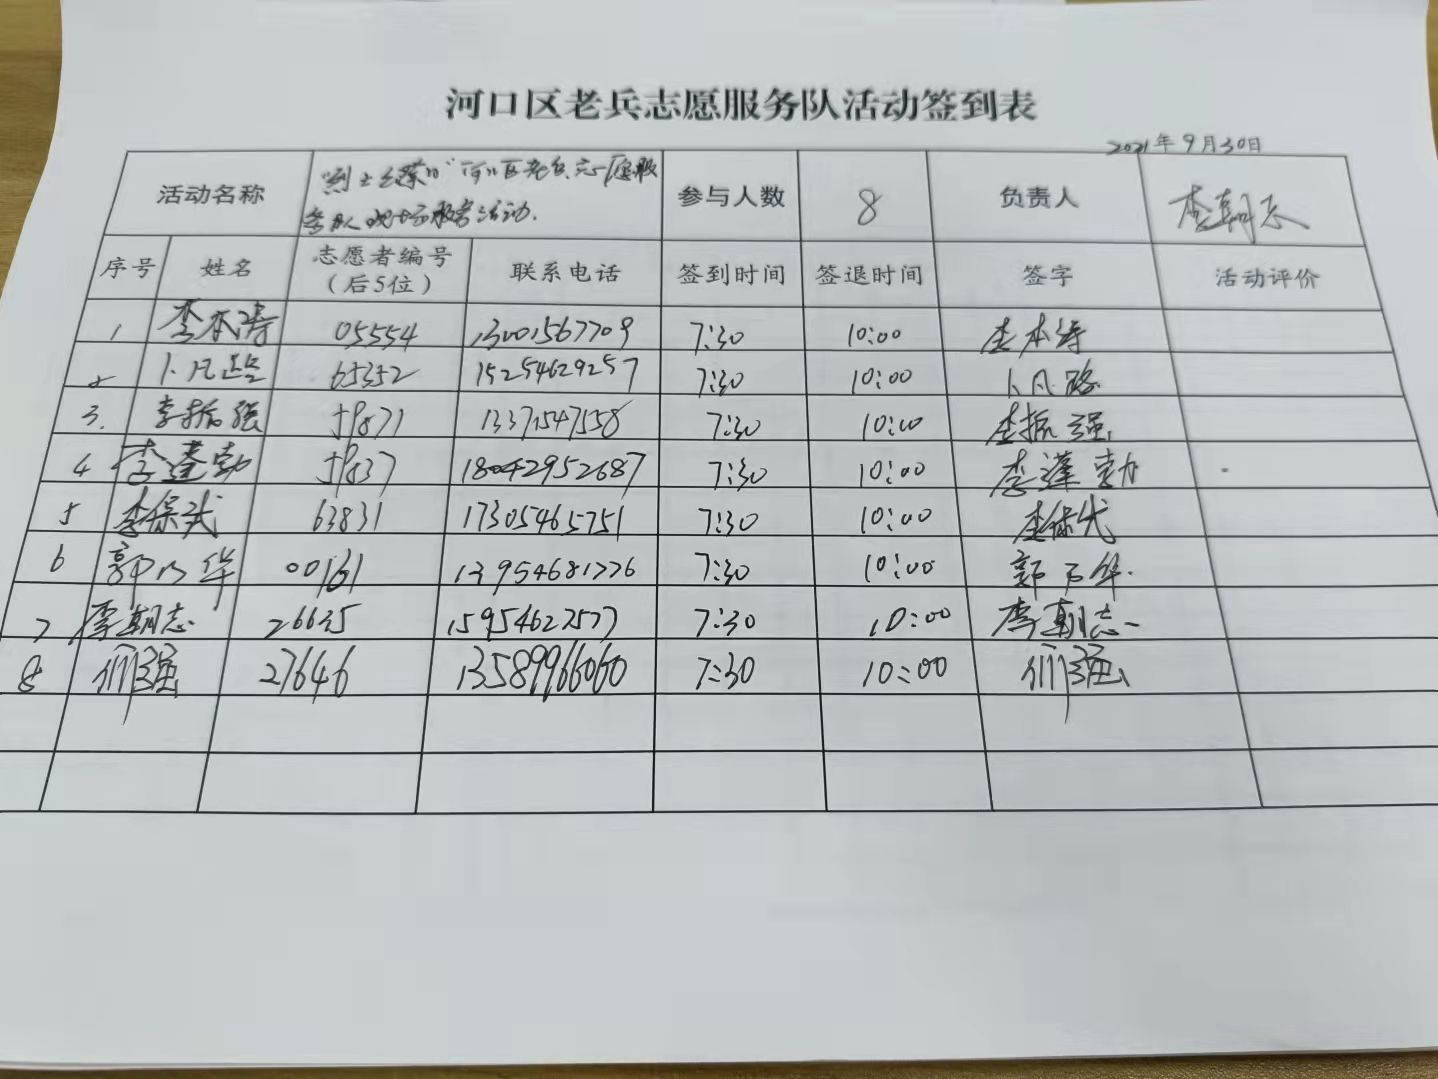 河口区老兵志愿服务队活动签到表
2021年9月30日
活动名称 "烈士公祭日"河口区老兵志愿服务队现场服务活动. 参与人数 8 负责人 李朝志
序号 姓名 志愿者编号（后5位） 联系电话 签到时间 签退时间 签字 活动评价
1 李本涛 05554 13001567709 7:30 10:00 李本涛
2 卜凡路 65352 15254629257 7:30 10:00 卜凡路
3. 李振强 13371547558 7:30 10:00 李振强
4 李蓬勃 18042952687 7:30 10:00 李蓬勃
5 李保武 63831 17305465751 7:30 10:00 李保武
6 郭乃华 00161 13954681776 7:30 10:00 郭乃华
7 李朝志 26635 15954627577 7:30 10:00 李朝志
8 27646 13589966060 7:30 10:00